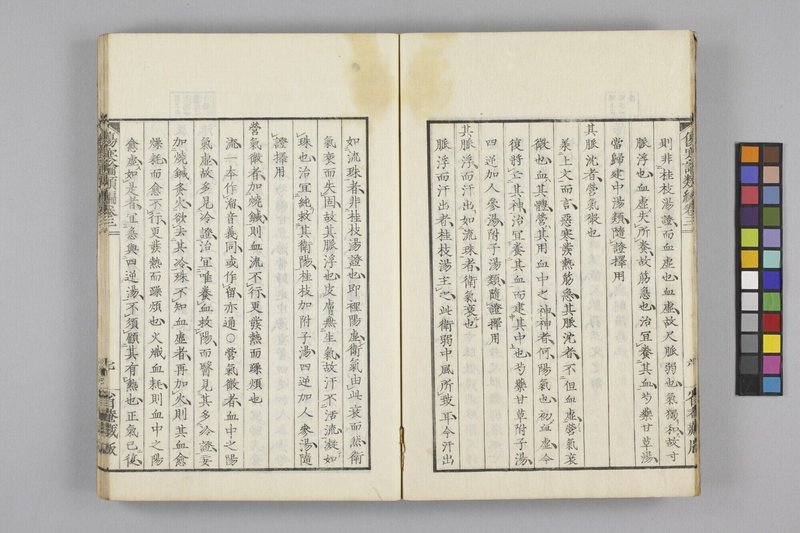 則非桂枝湯證而血虛也血虛故尺脈弱也氣獨和故寸
脈浮也血虛失所養故筋急也治宜養其血芍藥甘草湯
當歸建中湯類隨證擇用
其脈沈者營氣微也
承上文而言惡寒發熱筋急其脈沈者不但血虛營氣衰
微也血其體營其用血中之神神者何陽氣也初血虛今
復將亡其神治宜養其血而建其中也芍藥甘草附子湯
四逆加人參湯附子湯類隨證擇用
其脈浮而汗出如流珠者衛氣衰也
脈浮而汗出者桂枝湯主之此衛弱中風所致耳今汗出
如流珠者非桂枝湯證也即裡陽虛衛氣由此衰而然衛
氣衰而失固故其脈浮也皮膚無生氣故汗不活流凝如
珠也治宜純救其衛陽桂枝加附子湯四逆加人參湯隨
證擇用
營氣微者加燒鍼則血流不行更發熱而躁煩也
流一本作溜音義同或作留亦通○營氣微者血中之陽
氣虛故多見冷證治宜唯養血救陽而醫見其多冷證妄
加燒鍼灸火欲去其冷殊不知血虛者再加火則其血愈
燥耗而愈不行更發熱而躁煩也火熾血耗則血中之陽
愈虛如是者宜急與四逆湯不須顧其有熱也正氣已復
傷寒論類編卷三
七